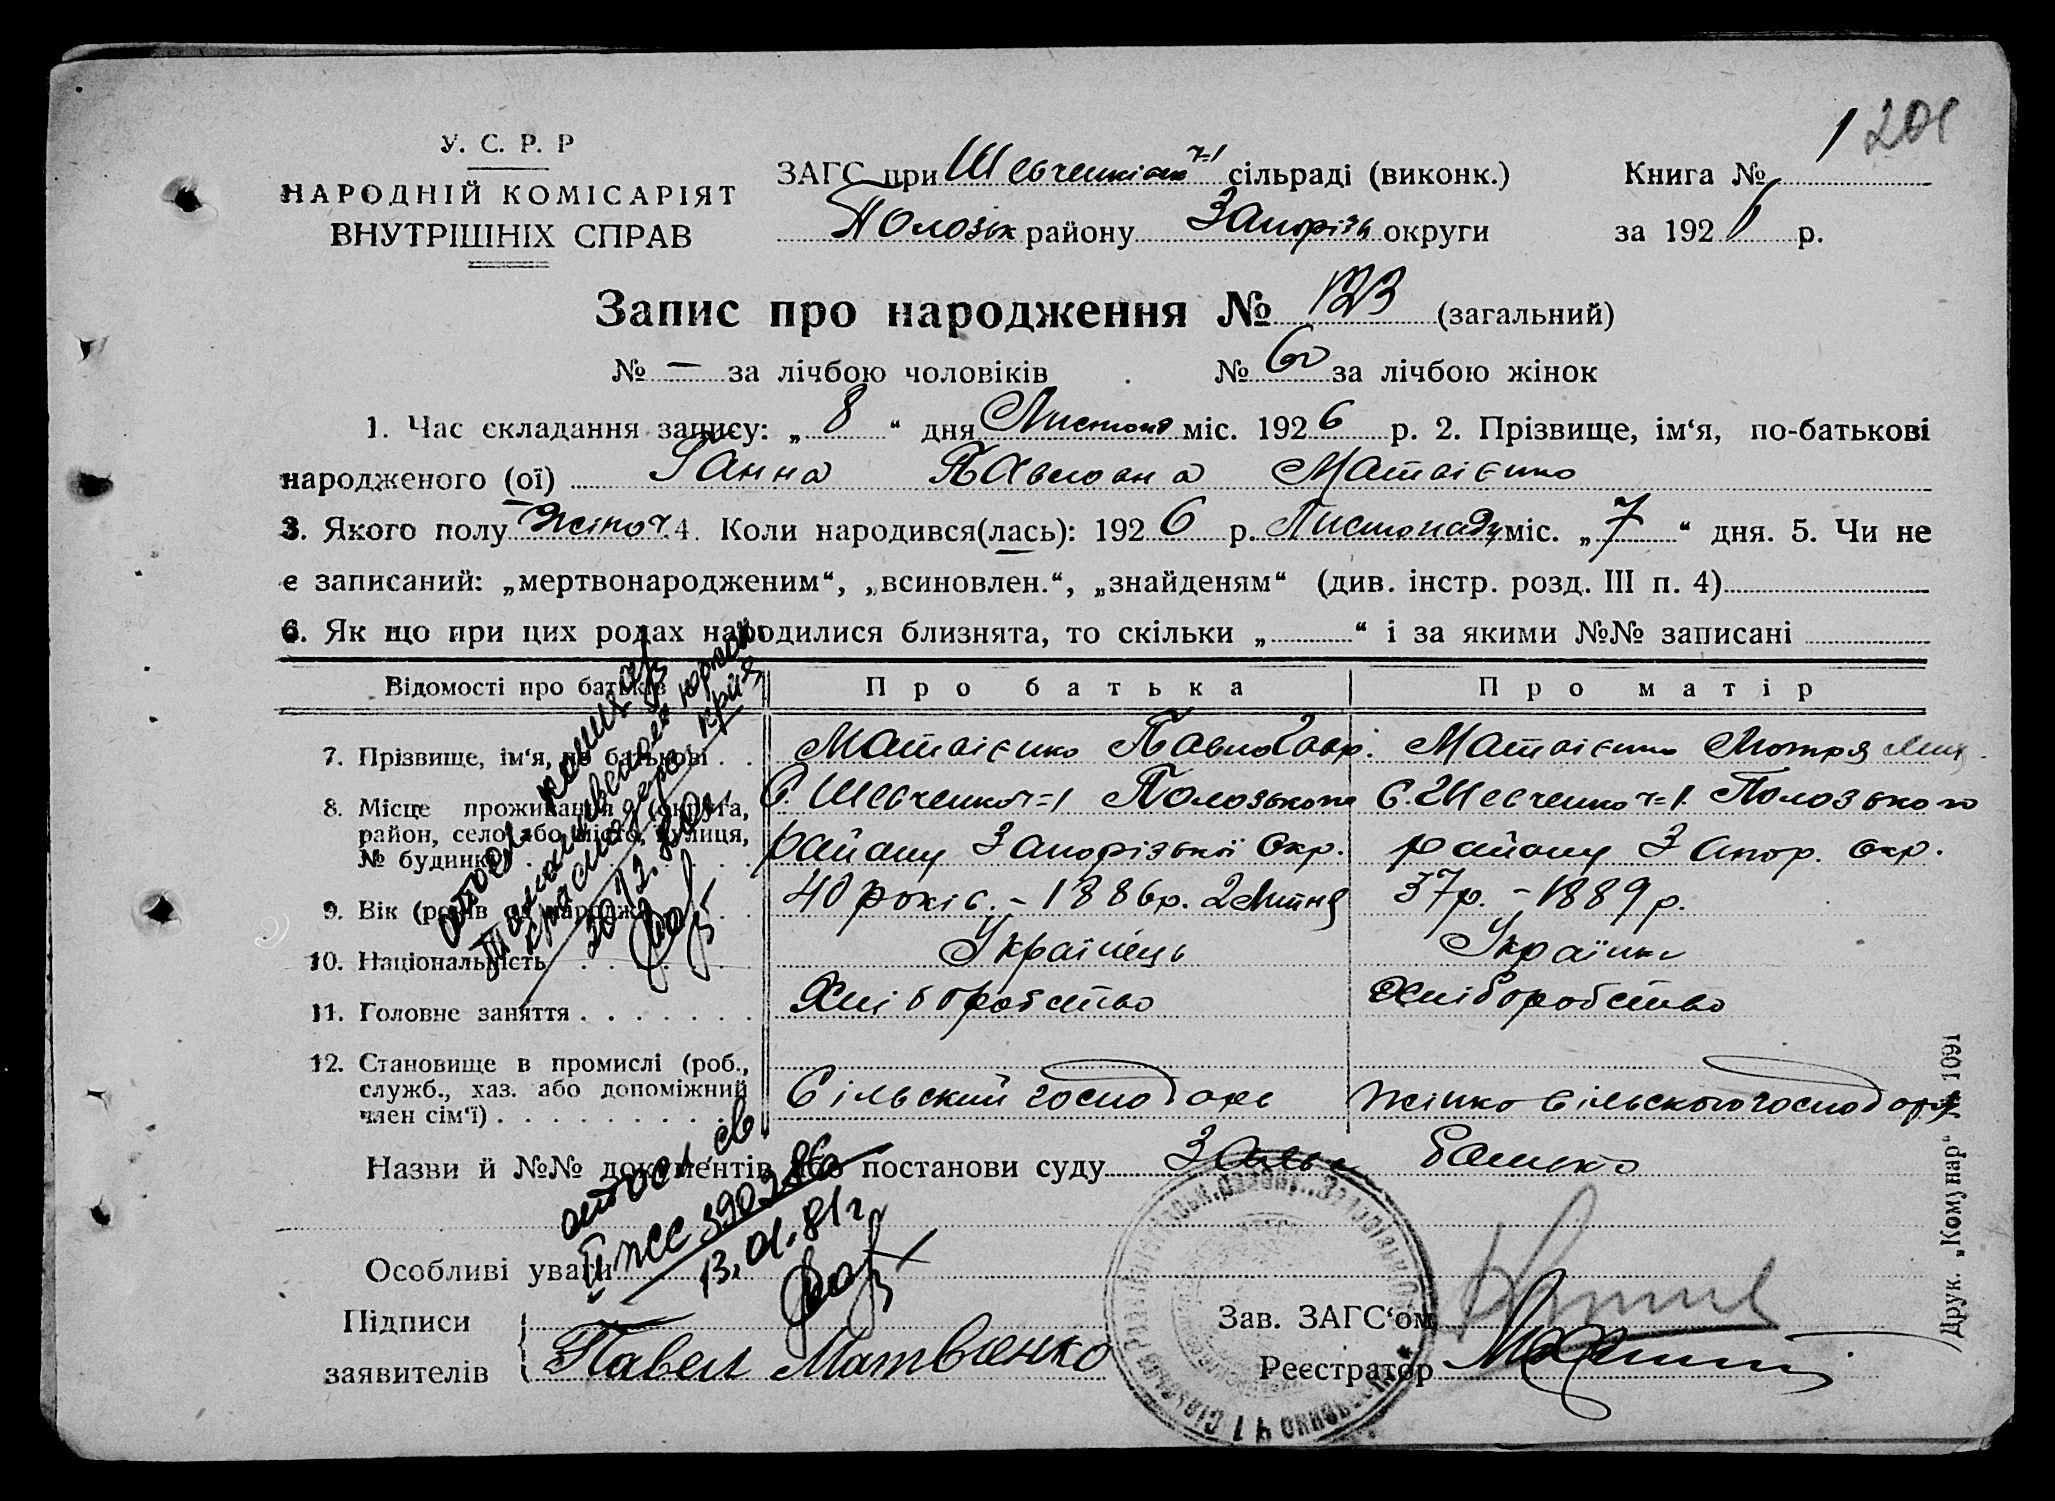 1 201
У. С. Р. Р
НАРОДНІЙ КОМІСАРІЯТ
ВНУТРІШНІХ СПРАВ
ЗАГС при Шевченківск ч=1 сільраді (виконк.) Книга №
Полозьк району Запорізь округи за 192 6 р.
Запис про народження № 123 (загальний)
№ — за лічбою чоловіків № 60 за лічбою жінок
1. Час складання запису: „ 8 “ дня Листопад міс. 192 6 р. 2. Прізвище, ім‘я, по-батькові
народженого (ої) Ганна Павловна Матвієнко
3. Якого полу жіноч. 4. Коли народився(лась): 192 6 р. Листопаду міс. „ 7 “ дня. 5. Чи не
є записаний: „мертвонародженим“, „всиновлен.“, „знайденям“ (див. інстр. розд. III п. 4)
6. Як що при цих родах народилися близнята, то скільки „ “ і за якими №№ записані
Відомості про батьків Про батька Про матір
7. Прізвище, ім‘я, по батькові . . Матвієнко Павло Гавр. Матвієнко Мотря
8. Місце проживання (округа, С. Шевченко ч=1 Полозького С. Шевченко ч=1. Полозького
район, село або місто, вулиця, району Запорізької Окр. району Запор. окр.
№ будинку)
9. Вік (років 40 років. – 1886р. 2 Липня 37р. – 1889 р.
10. Національність Українець Українка
11. Головне заняття Хліборобство Хліборобство
12. Становище в промислі (роб.,
служб., хаз. або допоміжний Сільский господарь жінка сільского господаря
член сім‘ї)
20.12.
Назви й №№ документів або постанови суду Заява батька
II ЖС 390286
13.01.81г
Особливі уваги
Підписи Зав. ЗАГС‘ом
заявителів Павел Матвиенко Реєстратор
Друк. „Комунар“ № 1091